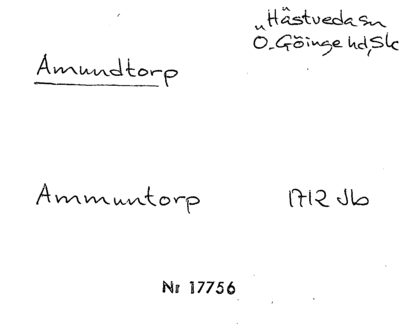 Hästveda sn
Ö. Göinge hd, Sk
Amundtorp
Ammuntorp 1712 Jb
Nr 17756